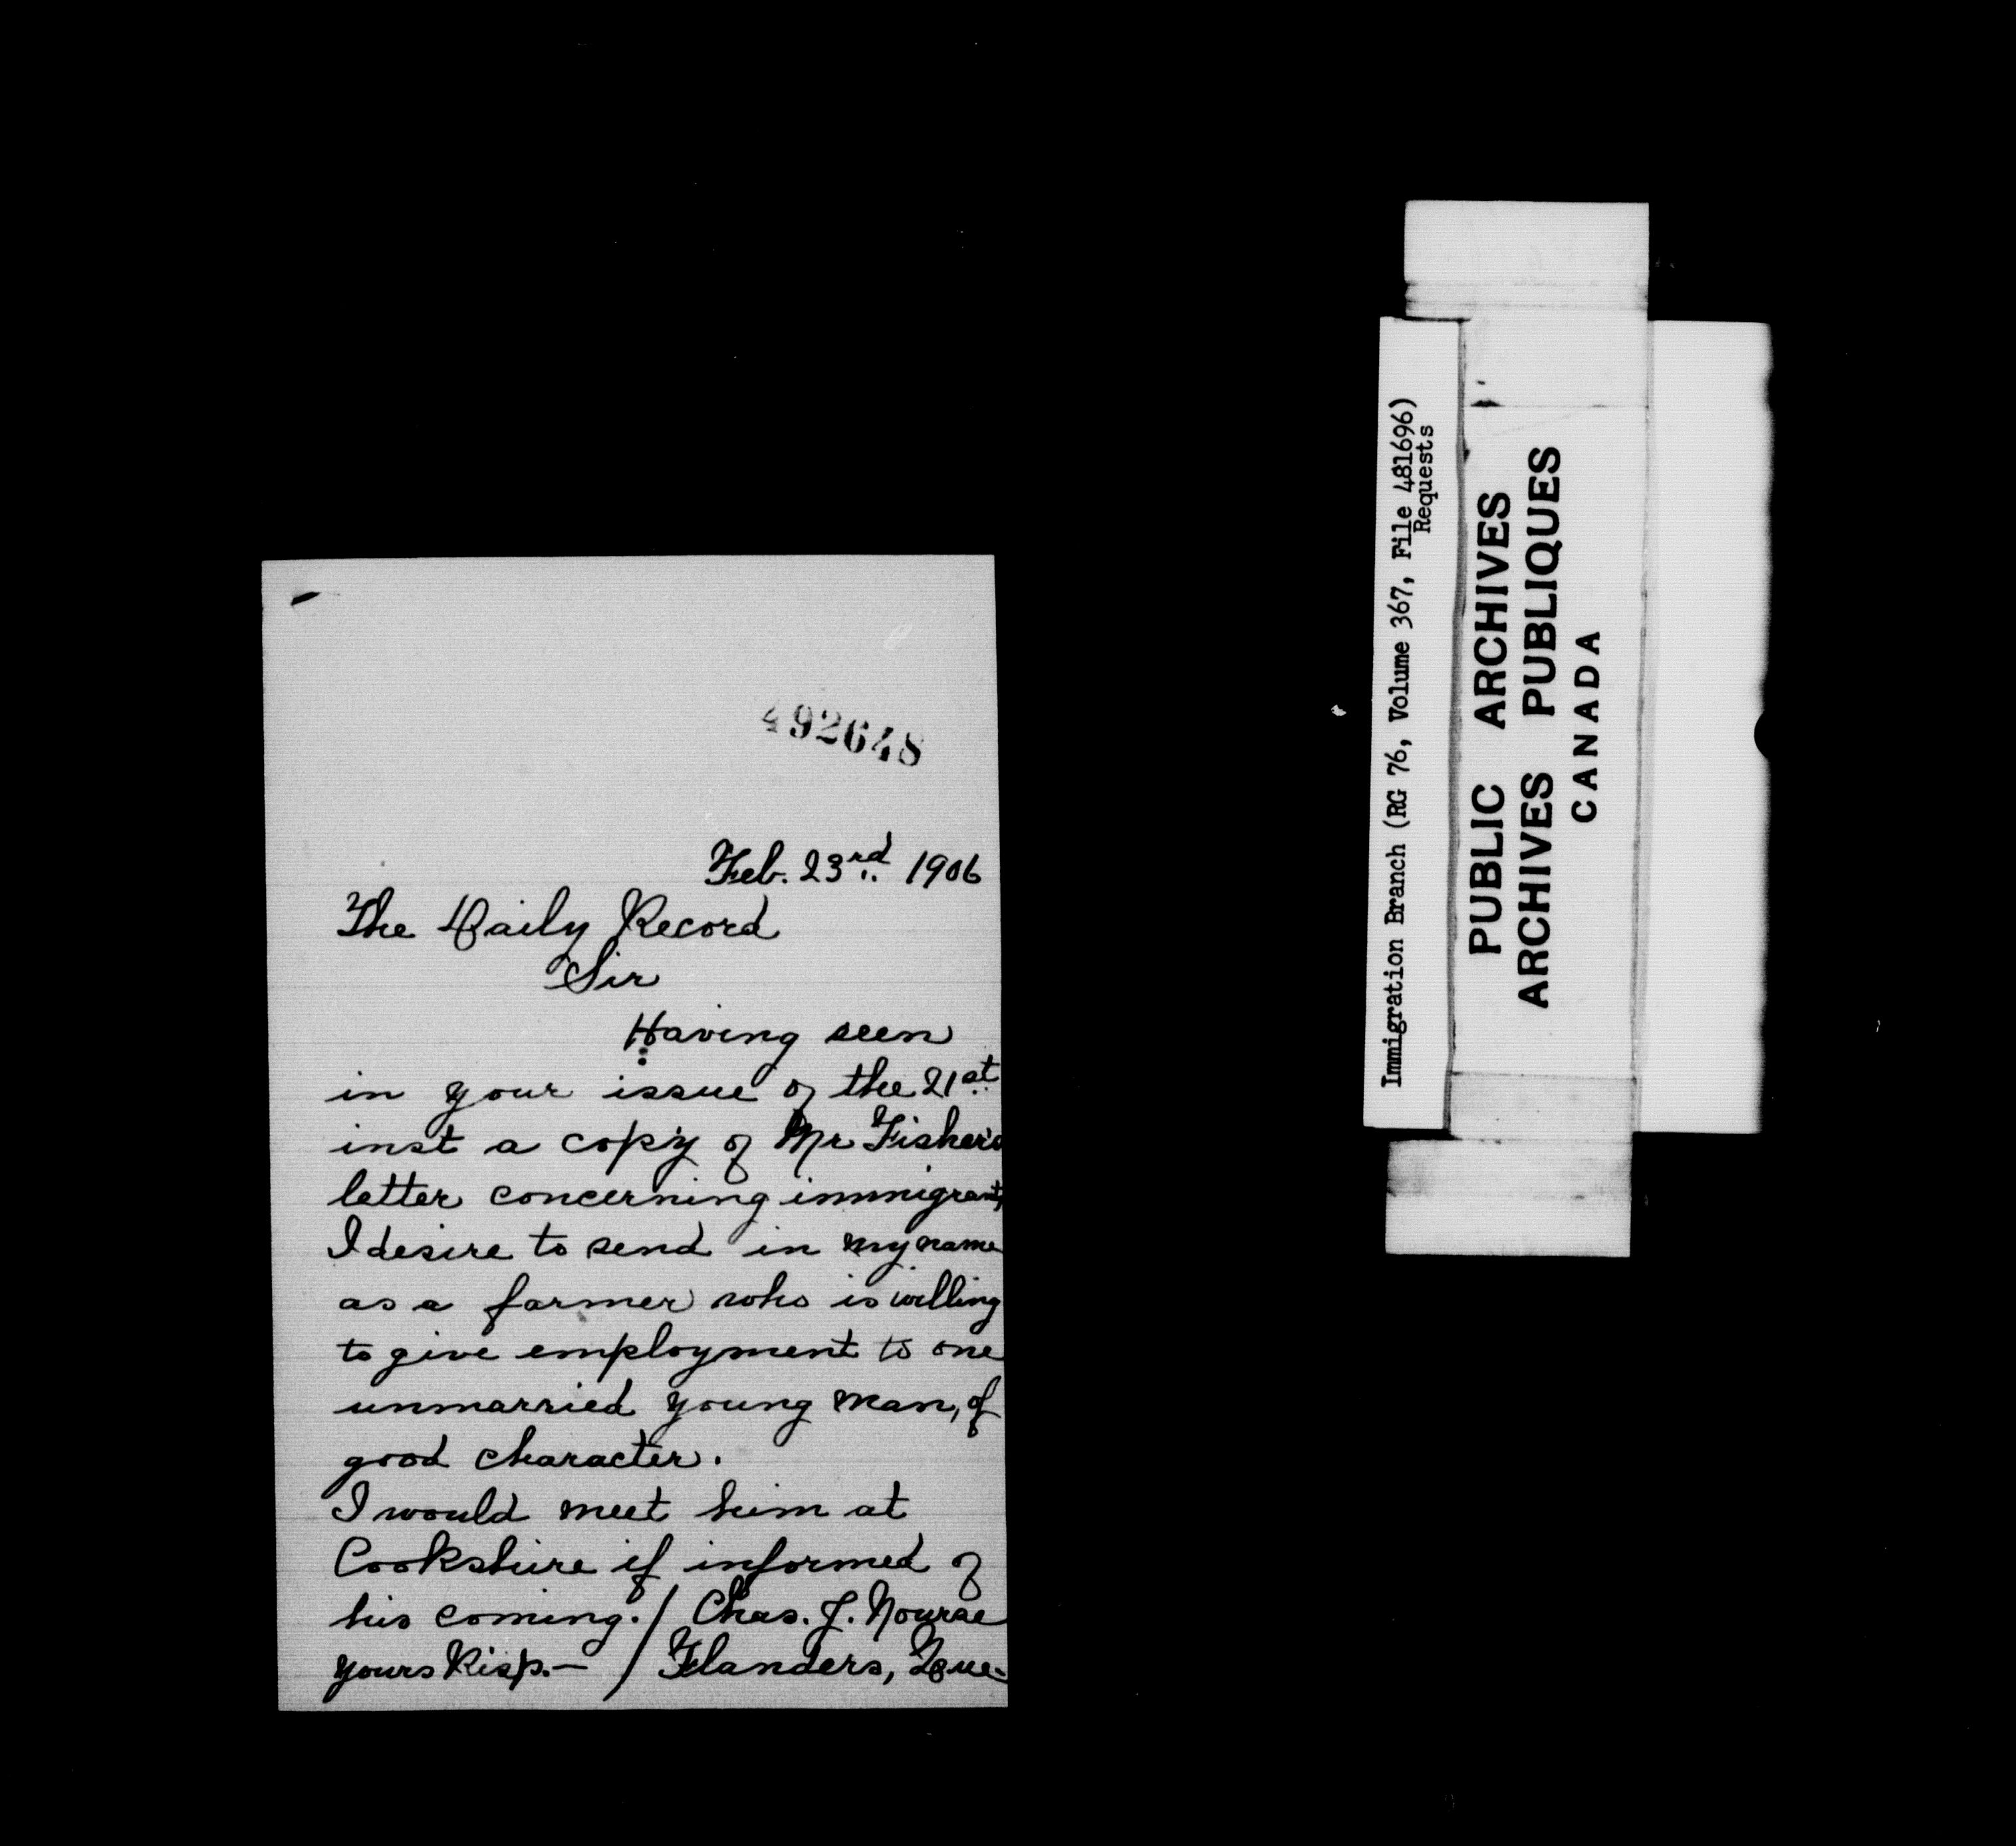 492648
Feb. 23rd 1906
The Daily Record
Sir
Having seen
in your issue of the 21st
inst a copy of Mr Fisher's
letter concerning immigrants
I desire to send in my name
as a farmer who is willing
to give employment to one
unmarried young man, of
good character.
I would meet him at
Cookshire if informed of
his coming. / Chas. J. Nourse
yours Resp. — / Flanders, Que-
Immigration Branch (RG 76, Volume 367, File 481696)
Requests
PUBLIC ARCHIVES
ARCHIVES PUBLIQUES
CANADA